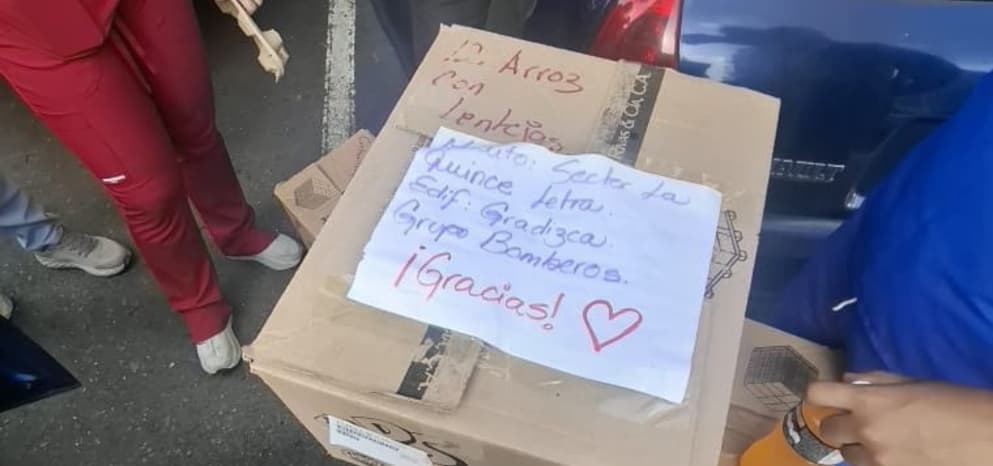 12. Arroz
con
Lentejas
Sector La
Quince Letra.
Edif. Gradizca.
Grupo Bomberos.
¡Gracias! ♡